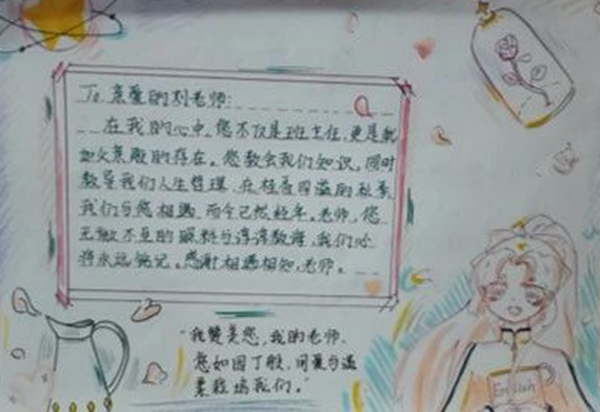 To 亲爱的刘老师:
在我的心中,您不仅是班主任,更是就
如父亲般的存在。您教会我们知识,同时
教导我们人生哲理,在桂香四溢的秋季,
我们与您相遇,而今已然经年。老师,您
无微不至的照料与谆谆教诲,我们必
将永远铭记。感谢相遇相知,老师。
"我赞美您,我的老师、
您如园丁般,用爱与温
柔栽培我们。"
English